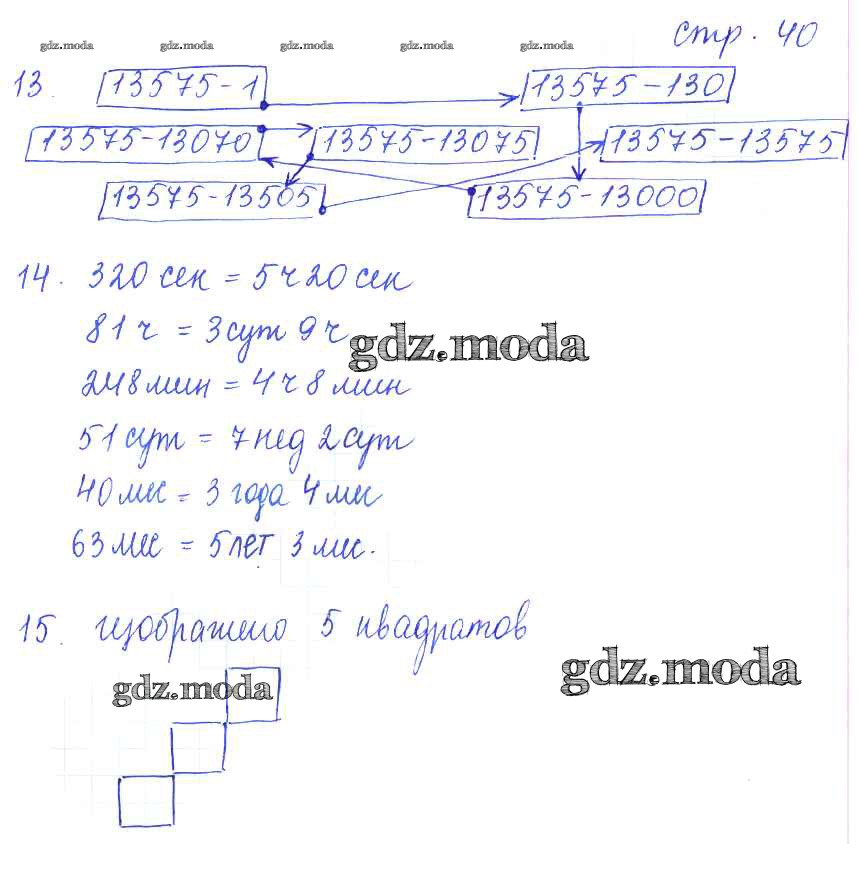 стр. 40
gdz.moda gdz.moda gdz.moda gdz.moda gdz.moda
13. 13575-1 13575-130
13575-13070 13575-13075 13575-13575
13575-13505 13575-13000
14. 320 сек = 5ч 20 сек
81 ч = 3 сут 9 ч
gdz.moda
248 мин = 4 ч 8 мин
51 сут = 7 нед 2 сут
40 мес = 3 года 4 мес
63 мес = 5 лет 3 мес.
15. изображено 5 квадратов
gdz.moda
gdz.moda